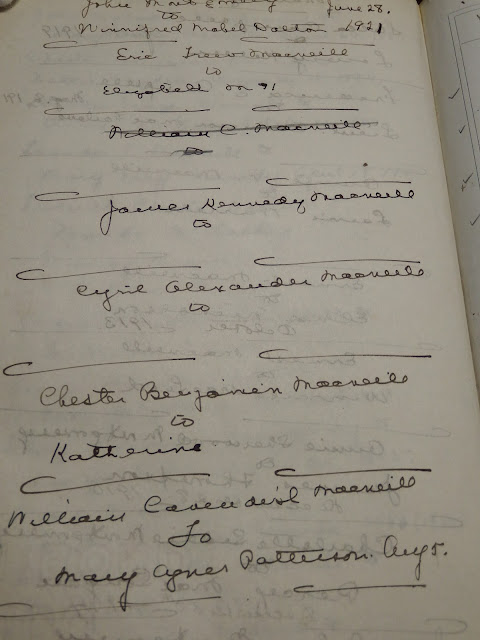 to June 28,
Winnifred Mabel Dalton 1921
Eric Macneill
to
Elizabeth
William C. Macneill
to
James Kennedy Macneill
to
Cyril Alexander Macneill
to
Chester Benjamin Macneill
to
Katherine
William Cavendish Macneill
To
Mary Agnes Patterson. Aug 5.